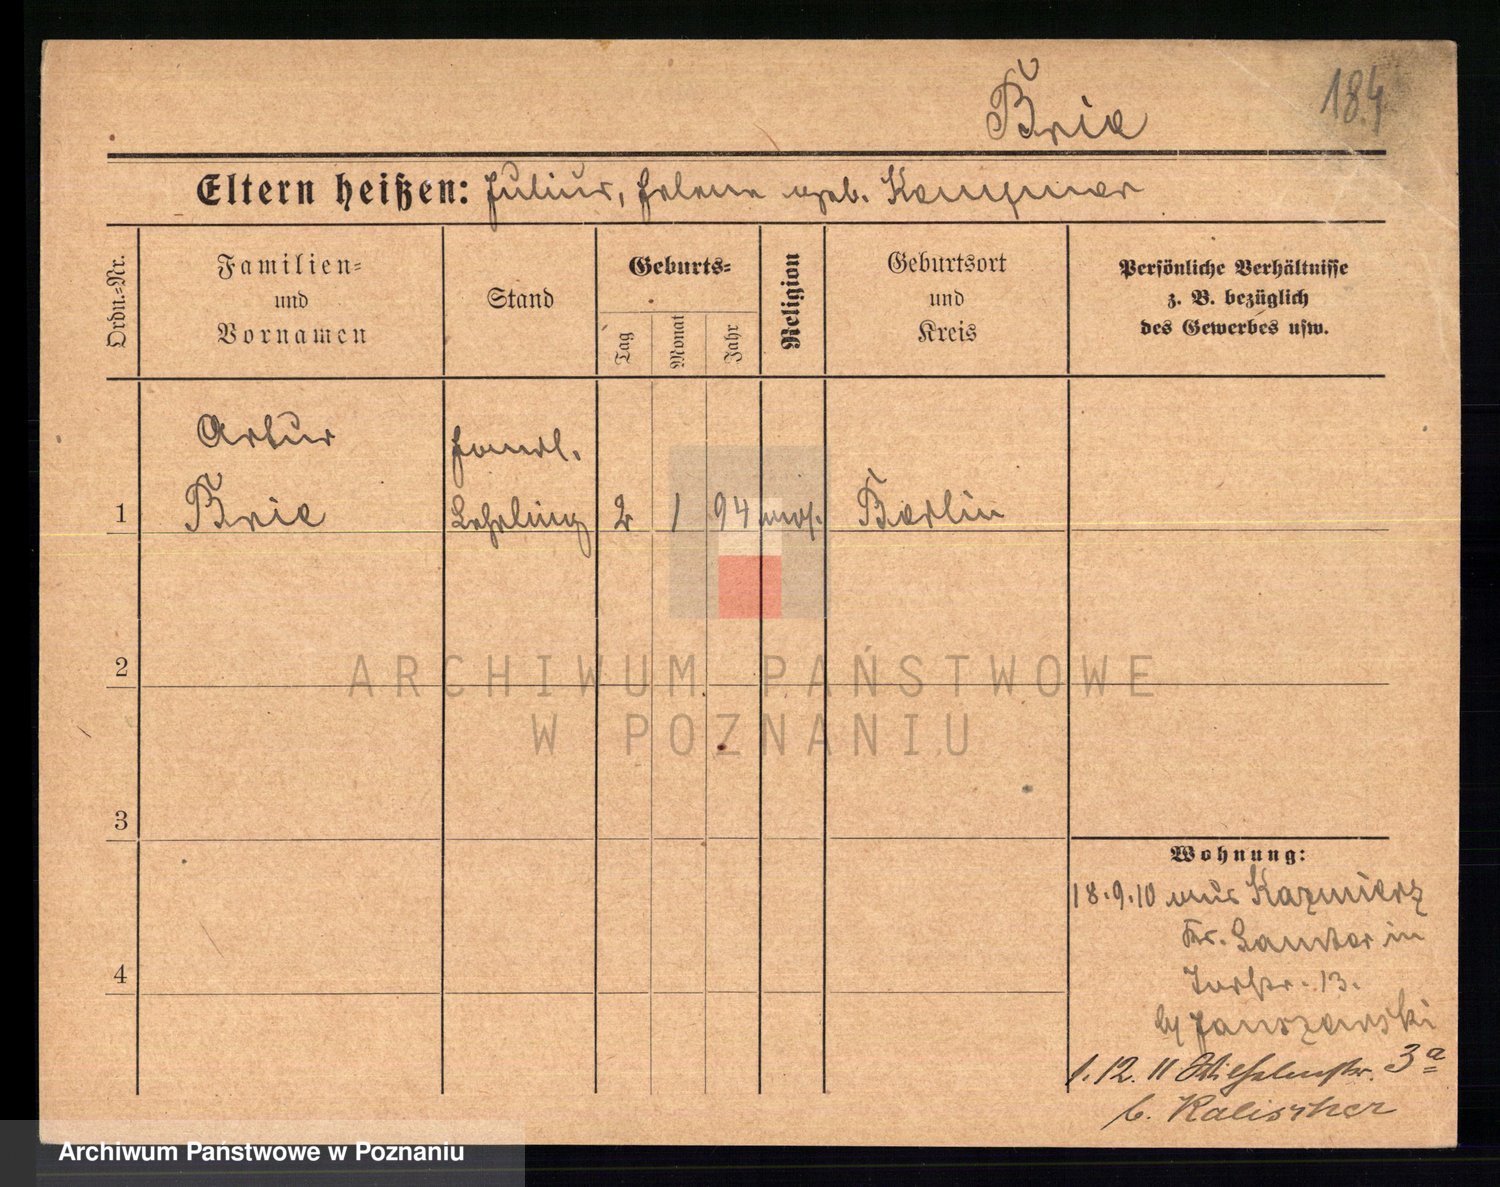 Brie
184
Eltern heißen: Julius, Helene geb. Kempner
Ordn.-Nr.
Familien-
und
Vornamen
Stand
Geburts-
Tag
Monat
Jahr
Religion
Geburtsort
und
Kreis
Persönliche Verhältnisse
z. B. bezüglich
des Gewerbes usw.
Artur
Handl.
1 Brie Lehrling 2 1 94 mos. Berlin
2
3
4
ARCHIWUM PAŃSTWOWE
W POZNANIU
Wohnung:
18.9.10 aus Kazmierz
Kr. Samter in
13.
Januszewski
1.12.11 Wilhelmstr. 3a
b. Kalischer
Archiwum Państwowe w Poznaniu